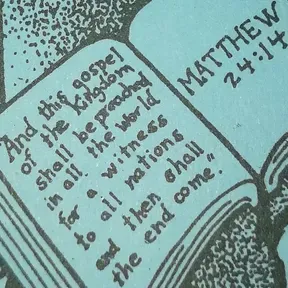 "And this gospel
of the kingdom
shall be preached
in all the world
for a witness
to all nations
and then shall
the end come."
MATTHEW
24:14